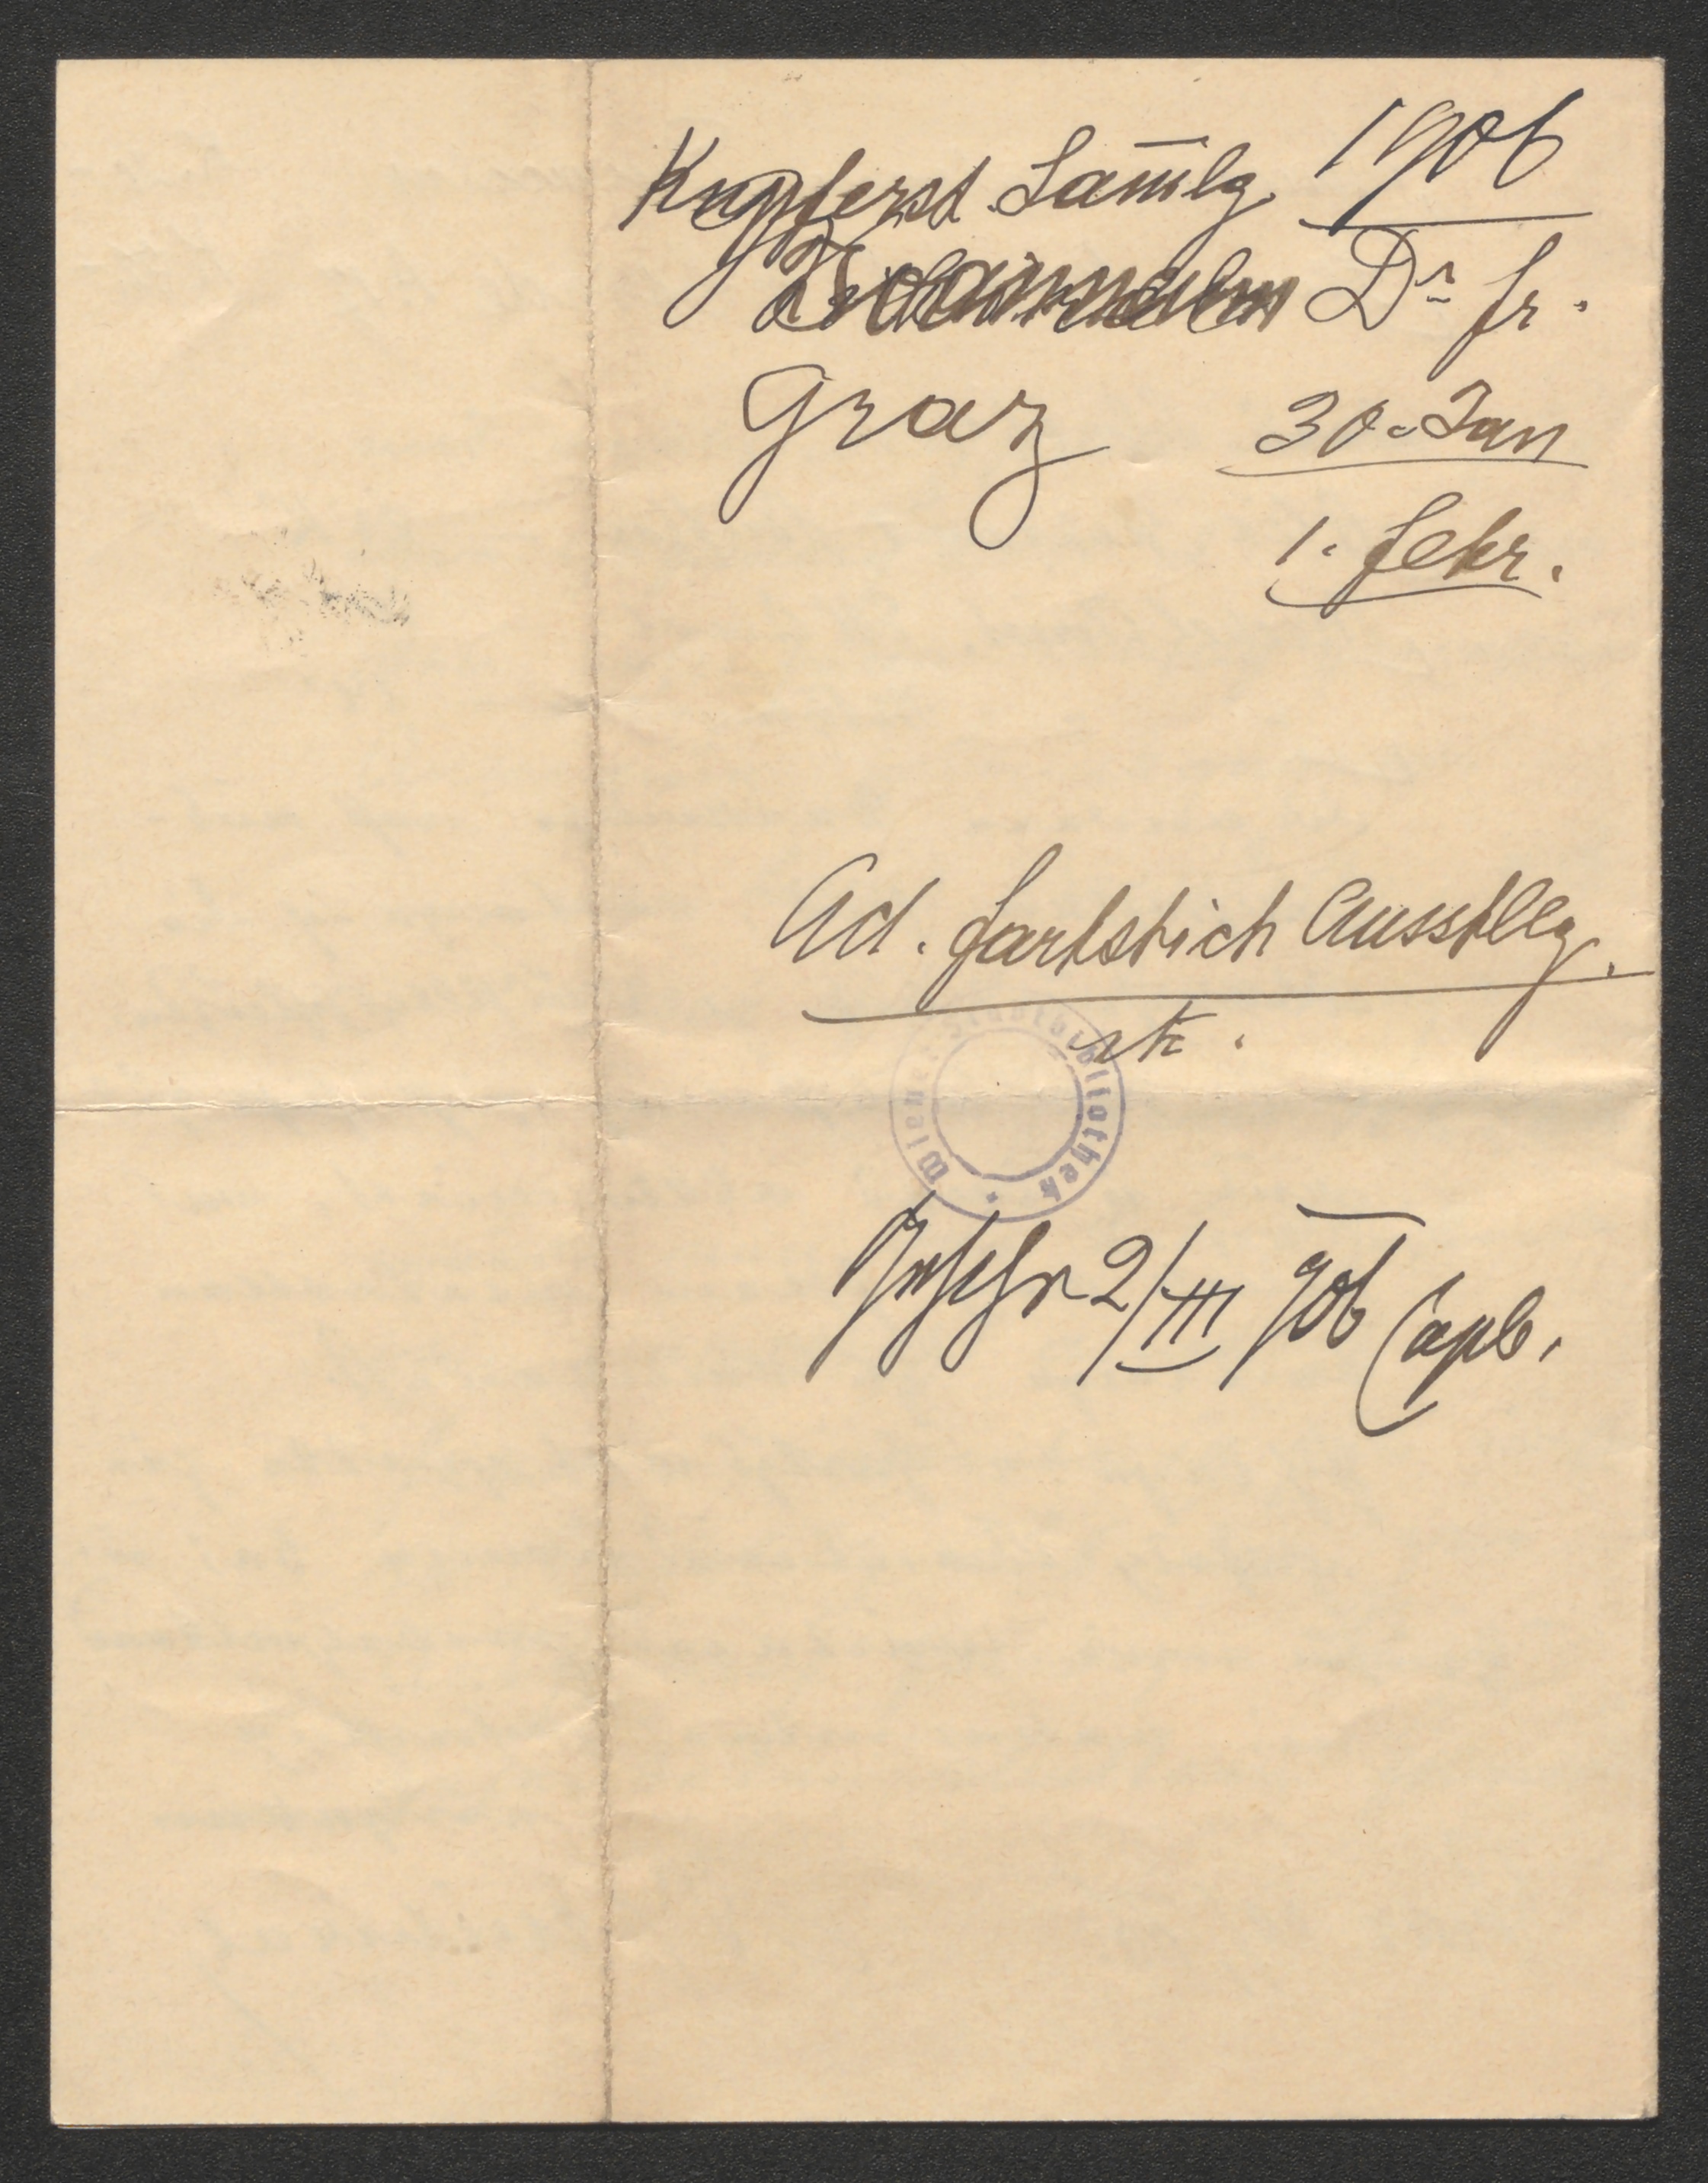 Kupferst. Samlg. 1906
Dr. fr.
Graz 30. Jan
1. febr.
Ad. farbstich Ausstllg.
etc.
Wiener Stadtbibliothek
2/III 906 Caple.